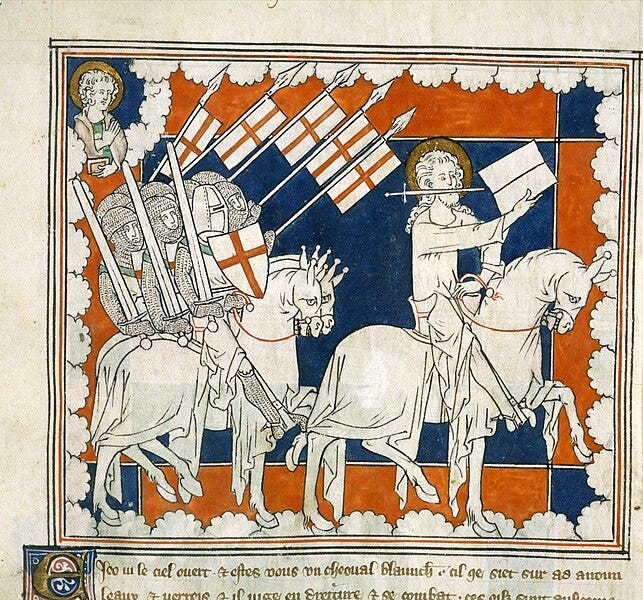 E Jeo vi le ciel ouert · & estes vous vn cheoual blaunch · cil qe siet sur ad a noun
leaux & verrois & il iuge en dreiture & se combat · ces oilz sunt